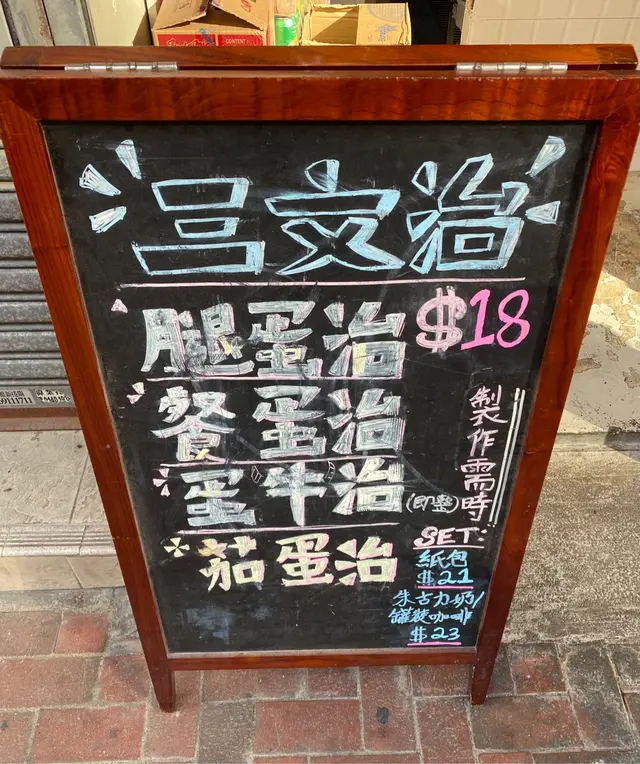 CONTENT
9111711
呂文治
腿蛋治
$18
餐蛋治
蛋牛治
(即整)
茄蛋治
製作需時
SET:
紙包
$21
朱古力奶/
罐裝咖啡
$23